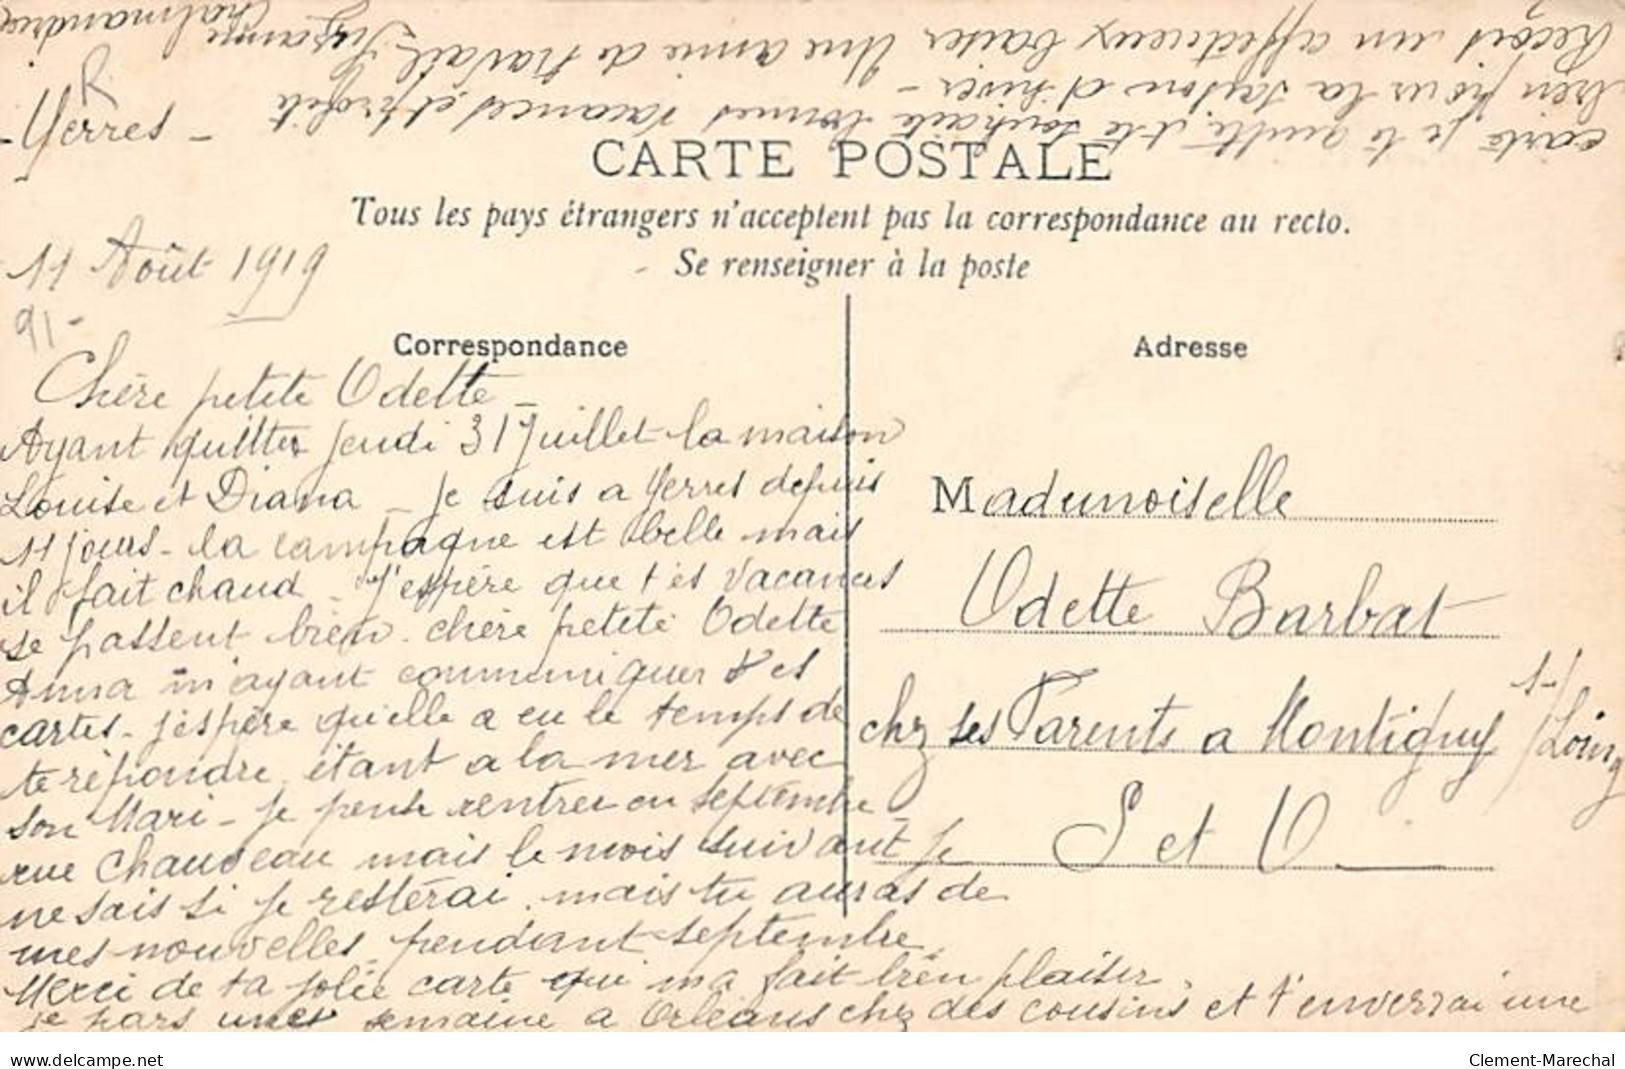 - Yerres -
R
11 Août 1919
91-
CARTE POSTALE
Tous les pays étrangers n'acceptent pas la correspondance au recto.
- Se renseigner à la poste
Correspondance
Chère petite Odette -
Ayant quitter jeudi 31 juillet la maison
Louise et Diana - je suis a Yerres depuis
11 jours - la campagne est belle mais
il fait chaud - J'espère que tes vacances
se passent bien. chère petite Odette
Anna m'ayant communiquer tes
cartes - j'espère qu'elle a eu le temps de
te répondre, étant a la mer avec
son Mari - je pense rentrer en septembre
rue Chaudeau mais le mois suivant je
ne sais si je resterai. mais tu auras de
mes nouvelles pendant septembre
Merci de ta jolie carte qui ma fait bien plaisir,
je pars une semaine a Orléans chz des cousins et t'enverrai une
carte, je te quitte, et te souhaite bonnes vacances, et profite
bien pour la saison d'hiver -
Reçois un affectueux baiser Une amie de travail, Suzanne
Chalmandrier
Adresse
Mademoiselle
Odette Barbat
chz ses Parents a Montigny s/Loing
S et O
www.delcampe.net
Clement-Marechal